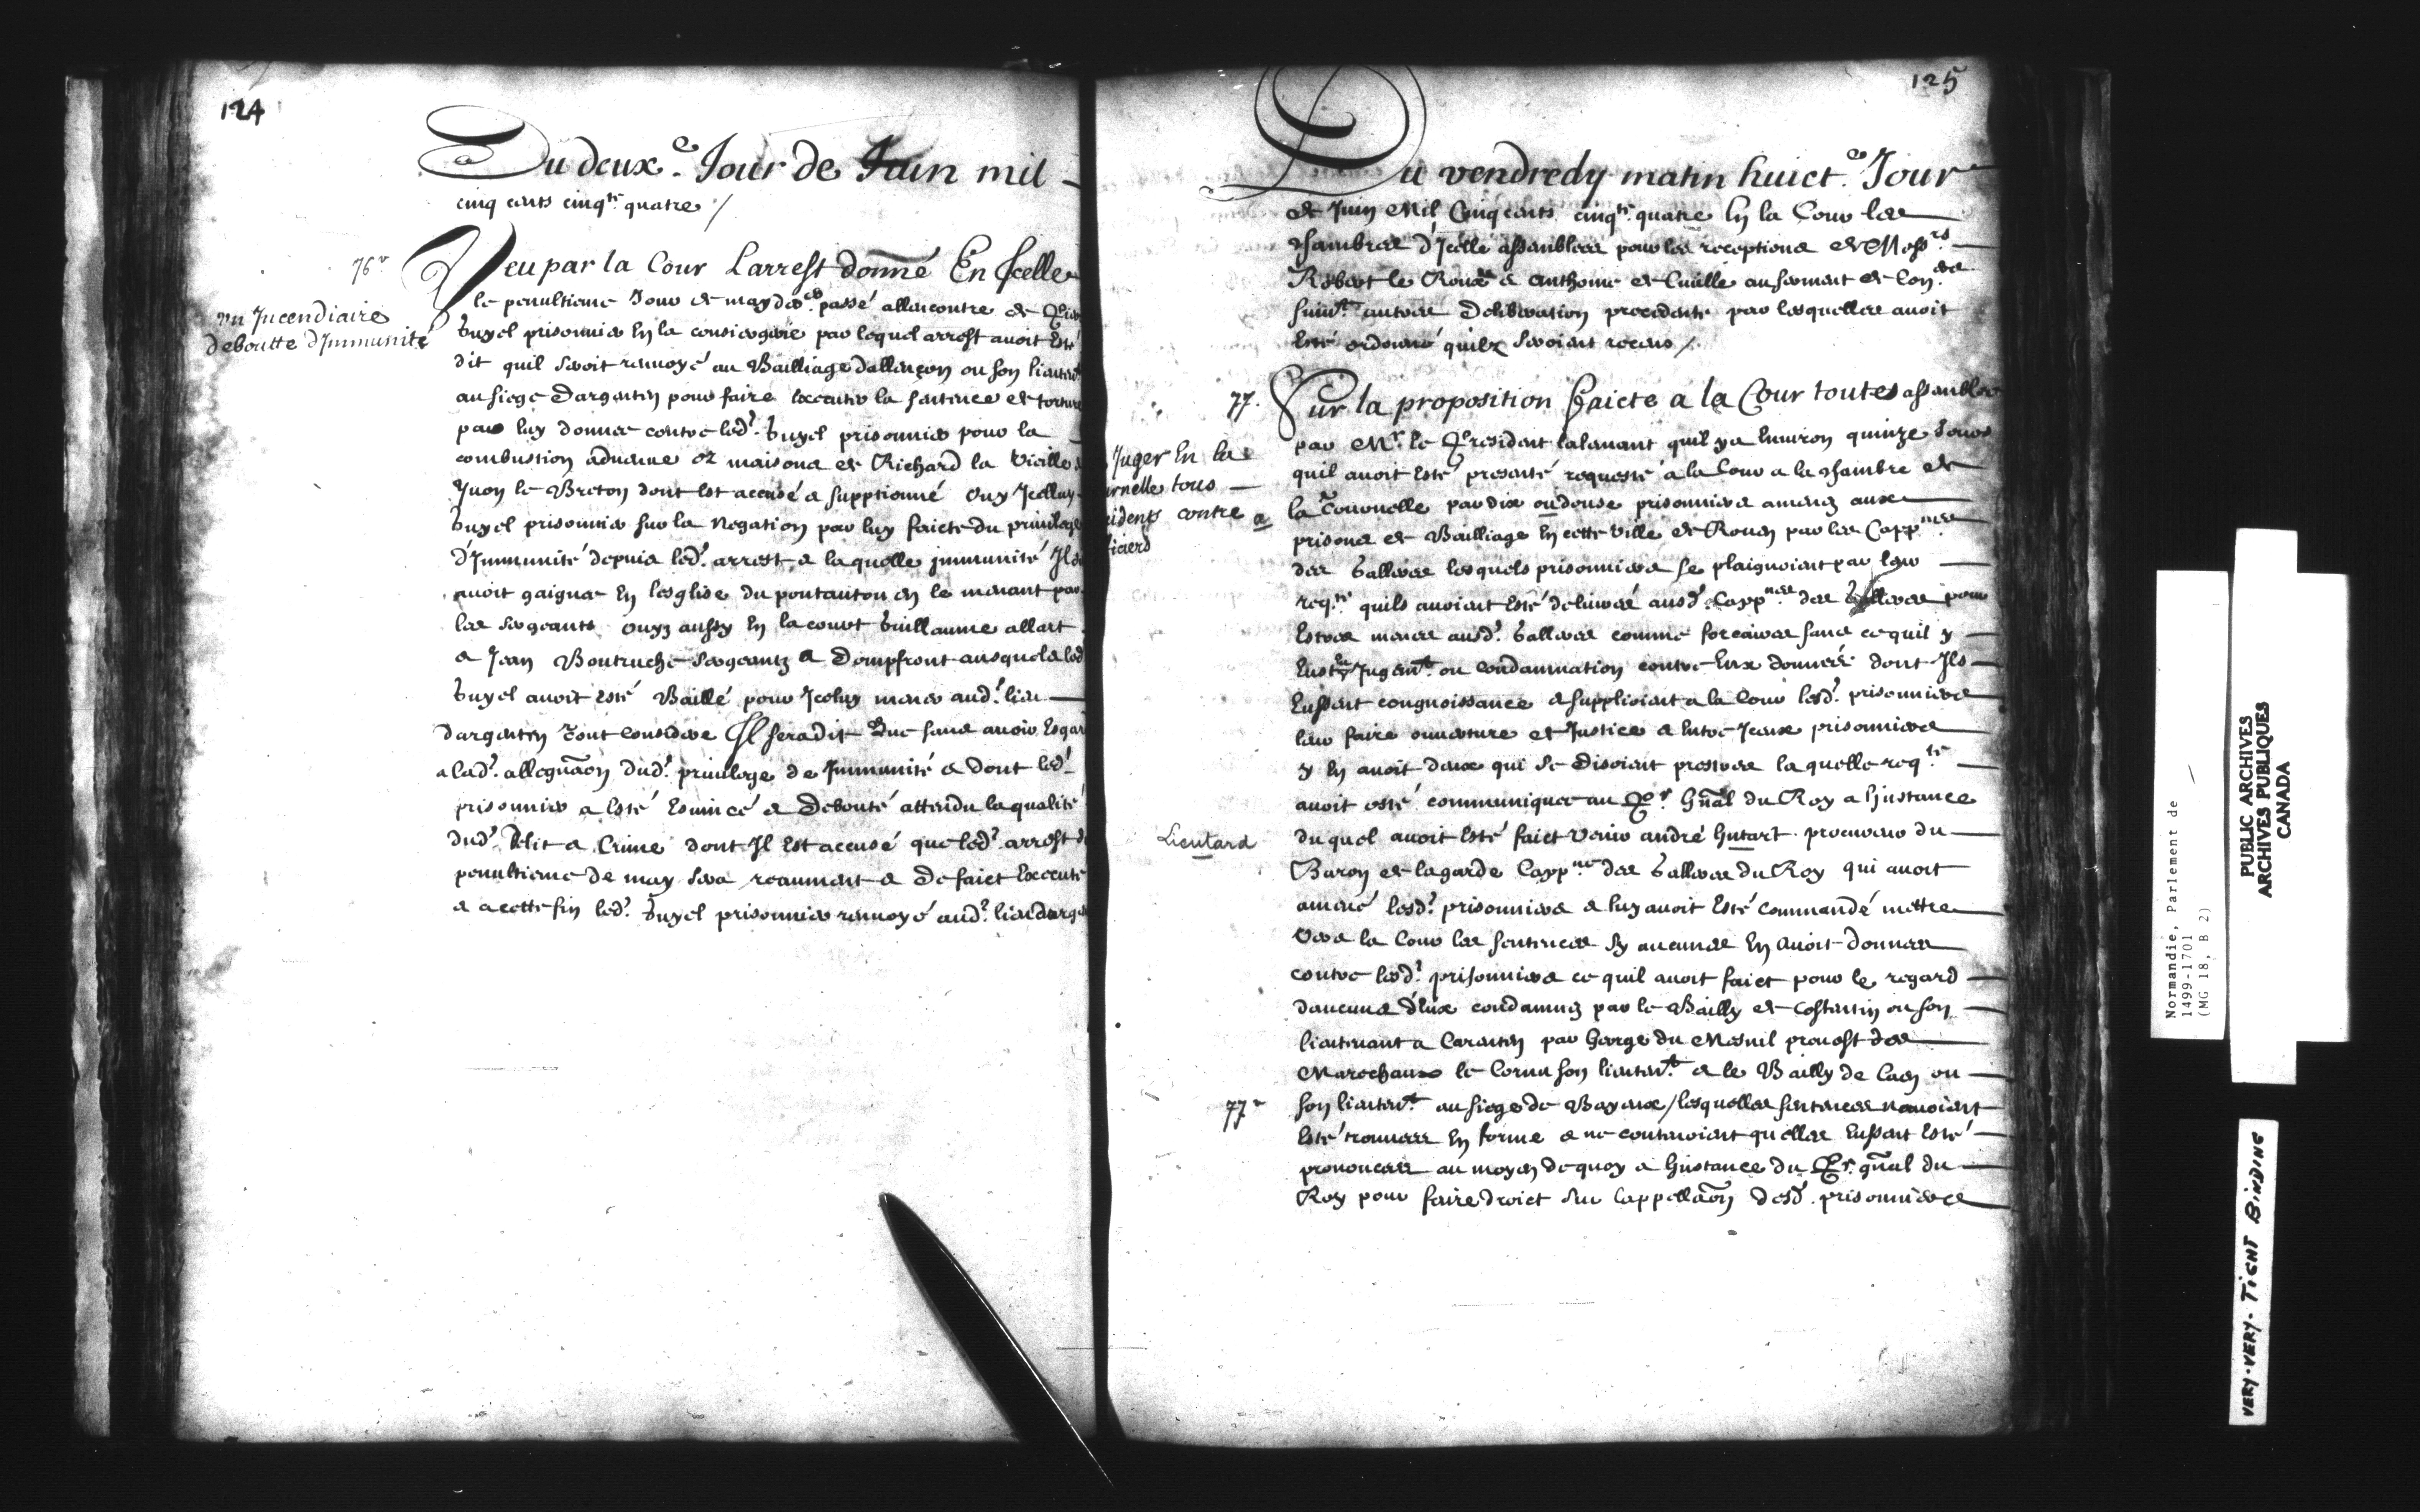 124
Du deux.e Jour de Juin mil
cinq cents cinqte quatre /
76.v
un Incendiaire
deboutte d'Immunité
Veu par la Cour Larrest donné En Icelle
le penultieme Jour de may der passé allencontre de
Guyel prisonnier En la consiergerie par lequel arrest avoit Esté
dit quil seroit renvoyé au Bailliage dallençon ou son lieuten.t
au siege Dargenten pour faire Executer la sentence de torture
par luy donnee contre led.t Guyel prisonnier pour la
combustion advenue es maisons de Richard la Vieille
Yuon le Breton dont Est accusé & supptionné Ouy Icelluy
Guyel prisonnier sur la Negation par luy faicte du privilege
d'Immunité depuis led.t arrest & laquelle immunité Il
avoit gaignee En lesglise du pontautou en le menant par
les sergeants Ouyz aussy En la court Guillaume allart
& Jean Boutruche sergeantz a Dompfront ausquels led
Guyel avoit esté Baillé pour Iceluy mener aud.t lieu
Dargenten Tout considere Il sera dit Que sans avoir Esgard
a lad.t alleguaon dud.t privilege de Immunité & dont led.t
prisonnier a Esté Esvincé & Debouté attendu la qualité
dud.t Delit & Crime dont Il Est accusé que led.t arrest
penultieme de may sera reaument & De faict Executé
& a cette fin led.t Guyel prisonnier renvoyé aud.t lieu darge
125
Du vendredy matin huict.e Jour
de Juin Mil Cinq cents cinqte quatre En la Cour les
chambres d'Icelle assemblees pour les receptions de Mess.rs
Robert le Roux & Anthoine de Cuille au serment de Con.ers
suiv.t autres Deliberation precedente par lesquelles avoit
Esté ordonné quilz seroient receus /
77.
Juger En la
urnelle tous
idents contre
iciers
Sur la proposition faicte a la Cour toutes assemblees
par Mr. le President lalemant quil ya Environ quinze Jours
quil avoit Esté presenté requeste a la Cour a la chambre de
la Tournelle par dix ou douse prisonniers amenez aux
prisons de Bailliage En cette ville de Rouen par les Capp.nes
des Galleres lesquels prisonniers se plaignoient par leur
req.te quils avoient Esté delivrés ausd. Capp.nes des Galleres pour
Estres menes ausd.t Galleres comme forcaires sans ce quil y
Eust Jugem.t ou condamnation contre Eux donnéé dont Ils
Eussent congnoissance & supplioient a la Cour lesd.t prisonniers
leur faire ouverture de Justice & Entre Iceux prisonniers
y En avoit deux qui se Disoient prestres laquelle req.te
avoit esté communiquee au Pr. gnal du Roy a linstance
Lieutard
duquel avoit Esté faict venir andré hutart procureur du
Baron de lagarde Capp.ne des Galleres du Roy qui avoit
amené lesd.t prisonniers & luy avoit Esté commandé mettre
vers la Cour les sentences sy aucunes En avoit donnees
contre lesd.t prisonniers ce quil avoit faict pour le regard
daucuns d'Eux condamnez par le Bailly de Costentin ou son
lieutenant a Carenten par George du Mesnil provost des
Marechaux le Cornu son lieuten.t & le Bailly de Caen ou
77.v
son lieuten.t au siege de Bayeux / lesquelles sentences navoient
Esté trouvees En forme & ne contenoient quelles Eussent Esté
prononcees au moyen dequoy a linstance du Pr. gnal du
Roy pour faire droict sur lappellaon desd. prisonniers
Normandie, Parlement de
1499-1701
(MG 18, B 2)
PUBLIC ARCHIVES
ARCHIVES PUBLIQUES
CANADA
VERY-VERY-TIGHT BINDING